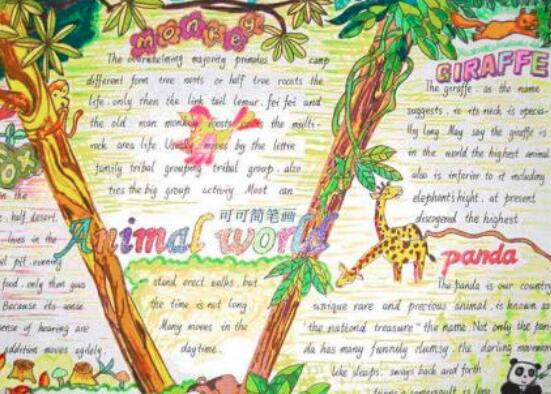 monkey
The overwhelming majority primates camp
different form tree roots or half tree roosts the
life. only then the link tail lemur. fei fei and
the old man monkey roosts is the multi-
rock area life. Usually moves by the little
family tribal grouping tribal group. also
ties the big group activity. Most can
可可简笔画
Animal world
stand erect walks, but
the time is not long
Many moves in the
daytime.
GIRAFFE
The giraffe. as the name
suggests. is its neck is specia-
lly long. May say the giraffe is
in the world the highest animal
also is inferior to it including
elephant's hight. at present
discovered the highest.
panda
The panda is our country
unique rare and precious animal. is known as
"the national treasure" the name. Not only the pan-
da has many funnily clumsy. the darling movement
like sleeps. sways back and forth.
turns a somersault is long
in the
half desert.
lives in the
pit. evening
food. only then goes
Because its sense
sense of hearing are
addition moves agilely.